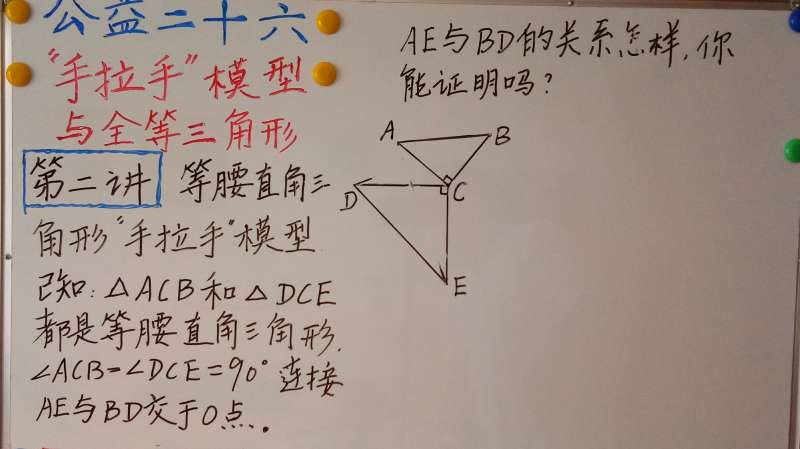 公益二十六
“手拉手”模型
与全等三角形
第二讲 等腰直角三
角形“手拉手”模型
已知:△ACB和△DCE
都是等腰直角三角形.
∠ACB=∠DCE=90° 连接
AE与BD交于O点.
AE与BD的关系怎样,你
能证明吗?
A
B
D
C
E